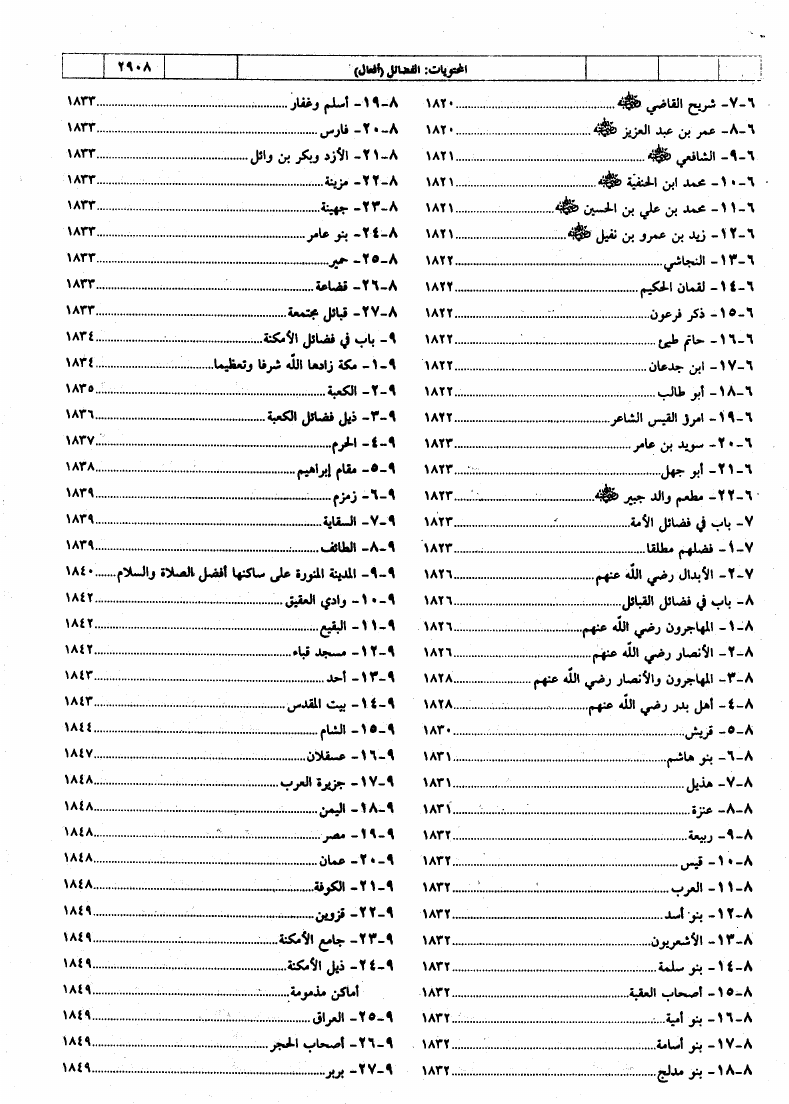 المحتويات: الفضائل (أفعال)
٢٩٠٨
٦-٧- شريح القاضي ﷺ ١٨٢٠
٦-٨- عمر بن عبد العزيز ﷺ ١٨٢٠
٦-٩- الشافعي ﷺ ١٨٢١
٦-١٠- محمد ابن الحنفية ﷺ ١٨٢١
٦-١١- محمد بن علي بن الحسين ﷺ ١٨٢١
٦-١٢- زيد بن عمرو بن نفيل ﷺ ١٨٢١
٦-١٣- النجاشي ١٨٢٢
٦-١٤- لقمان الحكيم ١٨٢٢
٦-١٥- ذكر فرعون ١٨٢٢
٦-١٦- حاتم طيئ ١٨٢٢
٦-١٧- ابن جدعان ١٨٢٢
٦-١٨- أبو طالب ١٨٢٢
٦-١٩- امرؤ القيس الشاعر ١٨٢٢
٦-٢٠- سويد بن عامر ١٨٢٣
٦-٢١- أبو جهل ١٨٢٣
٦-٢٢- مطعم والد جبير ﷺ ١٨٢٣
٧- باب في فضائل الأمة ١٨٢٣
٧-١- فضلهم مطلقا ١٨٢٣
٧-٢- الأبدال رضي الله عنهم ١٨٢٦
٨- باب في فضائل القبائل ١٨٢٦
٨-١- المهاجرون رضي الله عنهم ١٨٢٦
٨-٢- الأنصار رضي الله عنهم ١٨٢٦
٨-٣- المهاجرون والأنصار رضي الله عنهم ١٨٢٨
٨-٤- أهل بدر رضي الله عنهم ١٨٢٨
٨-٥- قريش ١٨٣٠
٨-٦- بنو هاشم ١٨٣١
٨-٧- هذيل ١٨٣١
٨-٨- عنزة ١٨٣١
٨-٩- ربيعة ١٨٣٢
٨-١٠- قيس ١٨٣٢
٨-١١- العرب ١٨٣٢
٨-١٢- بنو أسد ١٨٣٢
٨-١٣- الأشعريون ١٨٣٢
٨-١٤- بنو سلمة ١٨٣٢
٨-١٥- أصحاب العقبة ١٨٣٢
٨-١٦- بنو أمية ١٨٣٢
٨-١٧- بنو أسامة ١٨٣٢
٨-١٨- بنو مدلج ١٨٣٢
٨-١٩- أسلم وغفار ١٨٣٣
٨-٢٠- فارس ١٨٣٣
٨-٢١- الأزد وبكر بن وائل ١٨٣٣
٨-٢٢- مزينة ١٨٣٣
٨-٢٣- جهينة ١٨٣٣
٨-٢٤- بنو عامر ١٨٣٣
٨-٢٥- حمير ١٨٣٣
٨-٢٦- قضاعة ١٨٣٣
٨-٢٧- قبائل مجتمعة ١٨٣٣
٩- باب في فضائل الأمكنة ١٨٣٤
٩-١- مكة زادها الله شرفا وتعظيما ١٨٣٤
٩-٢- الكعبة ١٨٣٥
٩-٣- ذيل فضائل الكعبة ١٨٣٦
٩-٤- الحرم ١٨٣٧
٩-٥- مقام إبراهيم ١٨٣٨
٩-٦- زمزم ١٨٣٩
٩-٧- السقاية ١٨٣٩
٩-٨- الطائف ١٨٣٩
٩-٩- المدينة المنورة على ساكنها أفضل الصلاة والسلام ١٨٤٠
٩-١٠- وادي العقيق ١٨٤٢
٩-١١- البقيع ١٨٤٢
٩-١٢- مسجد قباء ١٨٤٢
٩-١٣- أحد ١٨٤٣
٩-١٤- بيت المقدس ١٨٤٣
٩-١٥- الشام ١٨٤٤
٩-١٦- عسقلان ١٨٤٧
٩-١٧- جزيرة العرب ١٨٤٨
٩-١٨- اليمن ١٨٤٨
٩-١٩- مصر ١٨٤٨
٩-٢٠- عمان ١٨٤٨
٩-٢١- الكوفة ١٨٤٨
٩-٢٢- قزوين ١٨٤٩
٩-٢٣- جامع الأمكنة ١٨٤٩
٩-٢٤- ذيل الأمكنة ١٨٤٩
أماكن مذمومة ١٨٤٩
٩-٢٥- العراق ١٨٤٩
٩-٢٦- أصحاب الحجر ١٨٤٩
٩-٢٧- بربر ١٨٤٩